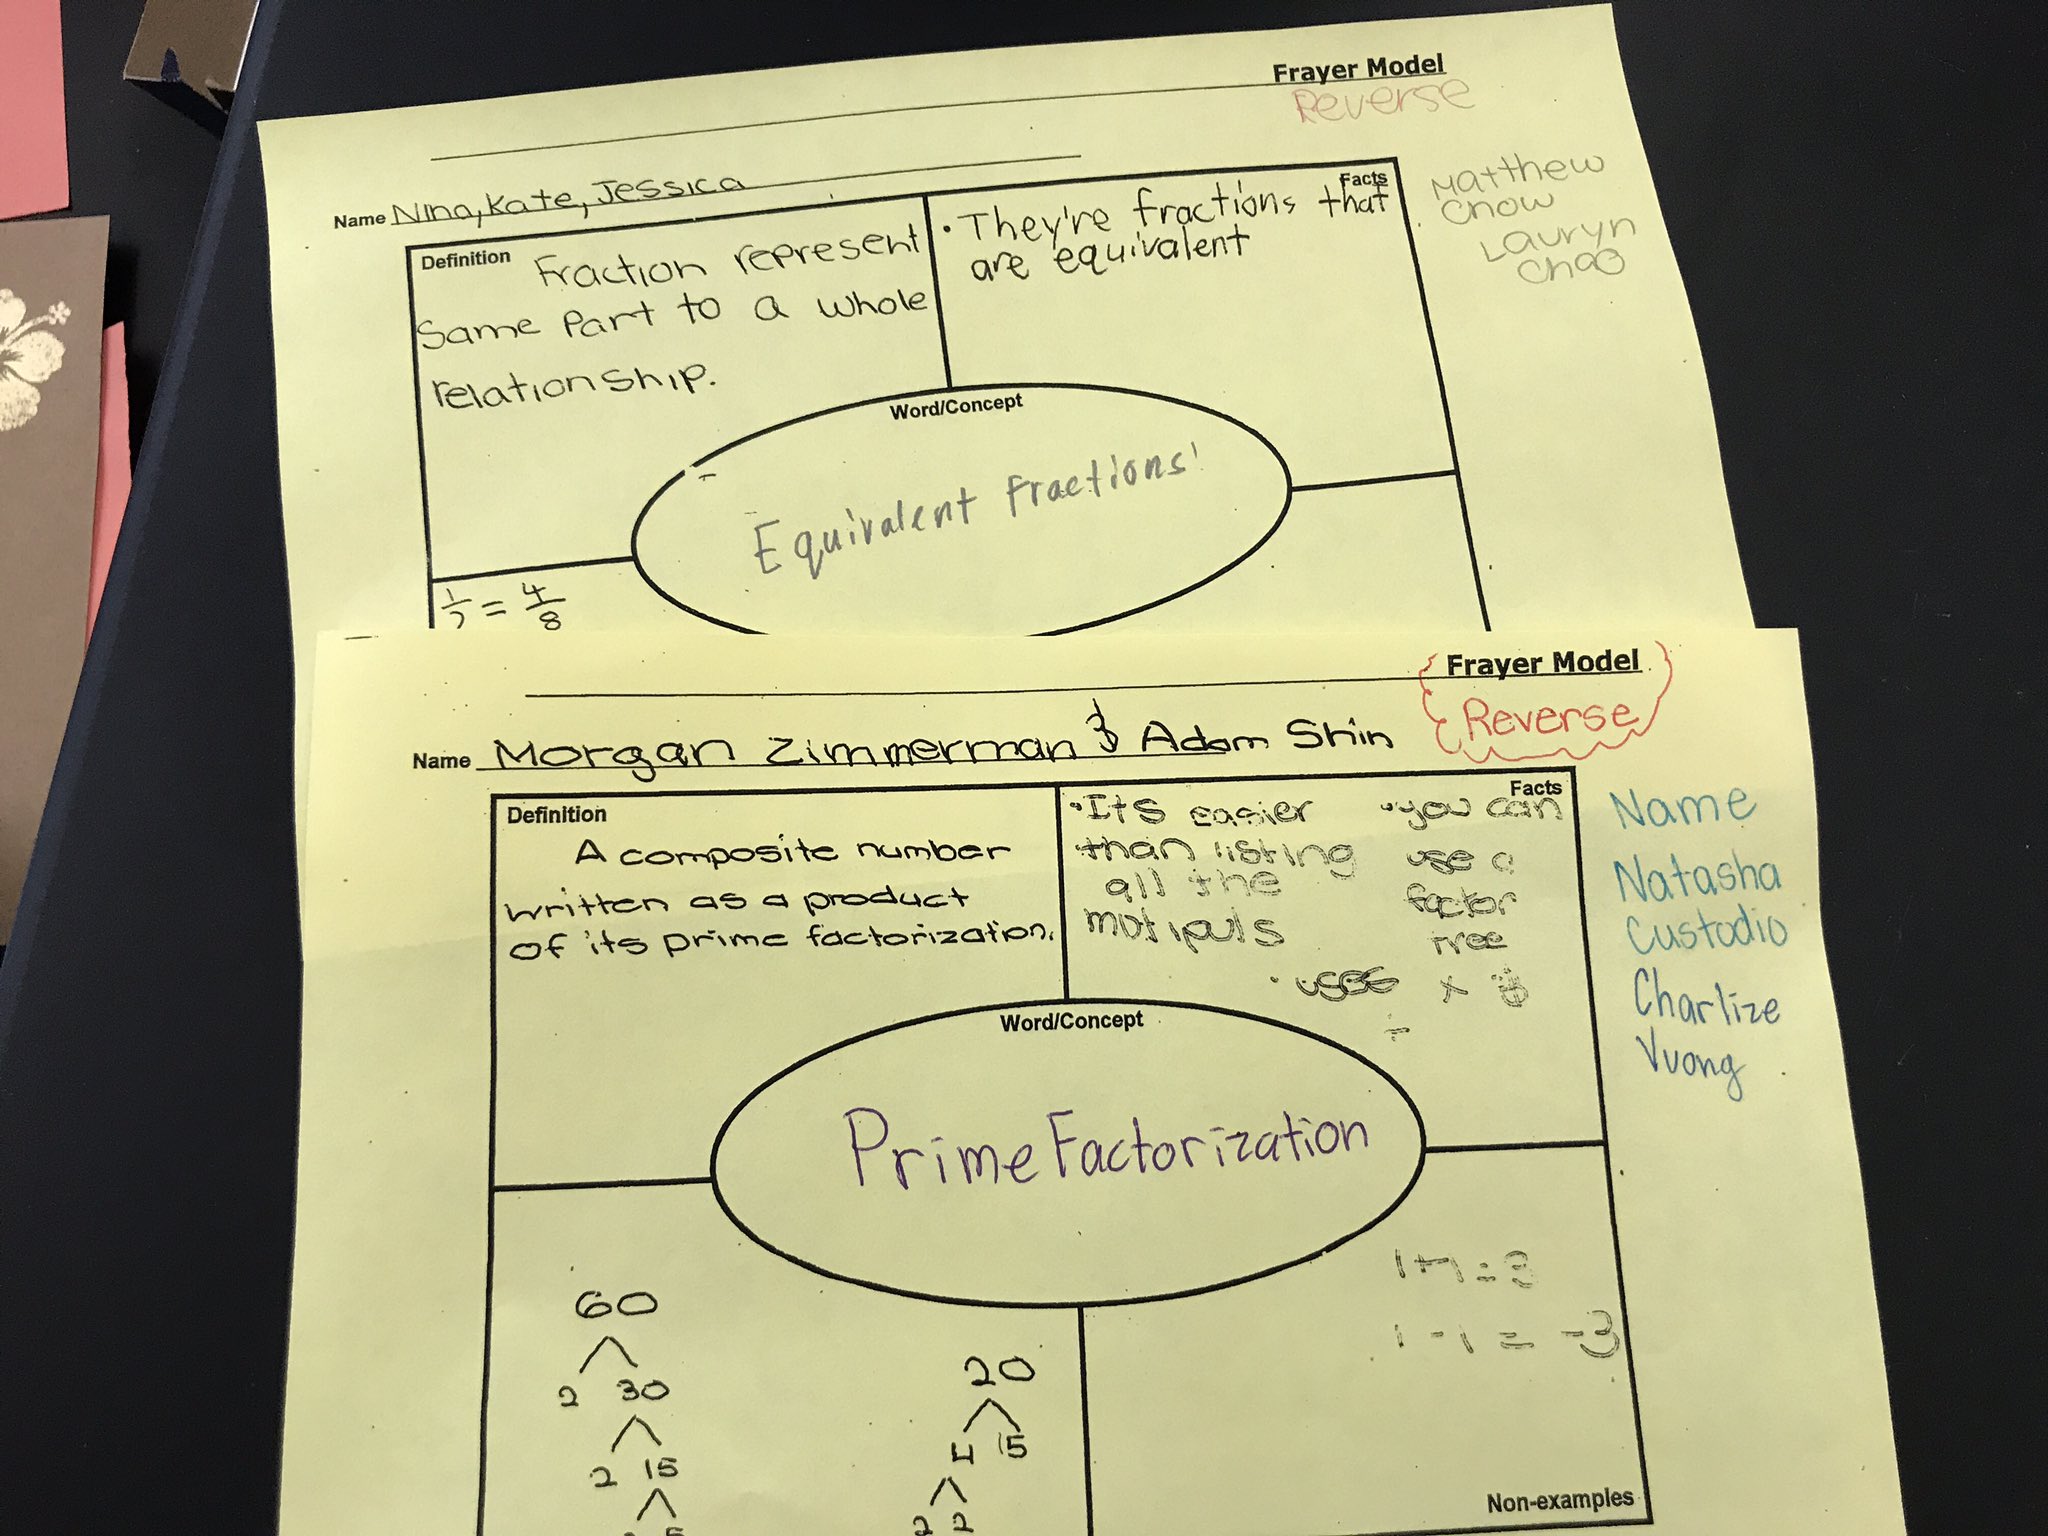 Frayer Model
Reverse
Name Nina, Kate, Jessica
Matthew
Chow
Lauryn
Chao
Definition
Fraction represent
same part to a whole
relationship.
Facts
• They're fractions that
are equivalent
Word/Concept
Equivalent fractions
1/2 = 4/8
Frayer Model
Reverse
Name Morgan Zimmerman & Adam Shin
Name
Natasha
Custodio
Charlize
Vuong
Definition
A composite number
written as a product
of its prime factorization.
Facts
• Its easier
than listing
all the
mutipuls
• you can
use a
factor
tree
• uses x
÷
Word/Concept
Prime Factorization
60
2 30
2 15
5
20
4 15
2 2
1+1=3
1-1=-3
Non-examples